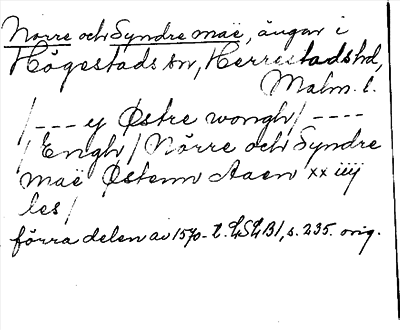 Norre och Syndre maë, ängar i
Högestads sn, Herrestads hd,
Malm. l.
/--- y Østre wongh/ ----
/Engh/ Nörre och Syndre
maë Østenn Aaen xx iiij
les/
förra delen av 1570-t. LSLB1, s. 235. orig.